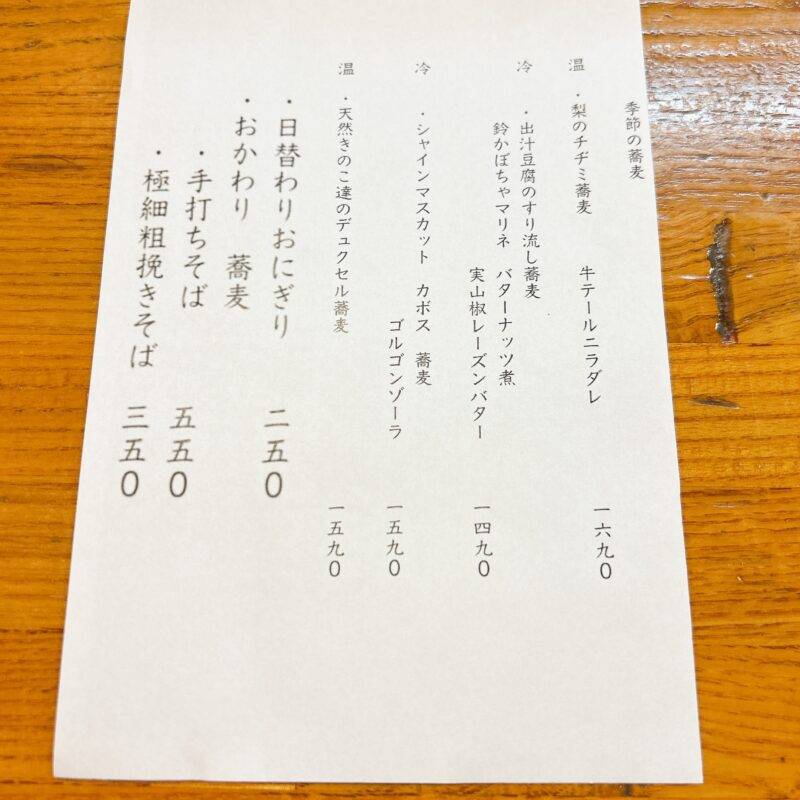 季節の蕎麦
温 ・梨のチヂミ蕎麦
牛テールニラダレ 一六九〇
冷 ・出汁豆腐のすり流し蕎麦
鈴かぼちゃマリネ バターナッツ煮
実山椒レーズンバター 一四九〇
冷 ・シャインマスカット カボス 蕎麦
ゴルゴンゾーラ 一五九〇
温 ・天然きのこ達のデュクセル蕎麦 一五九〇
・日替わりおにぎり 二五〇
・おかわり 蕎麦
・手打ちそば 五五〇
・極細粗挽きそば 三五〇